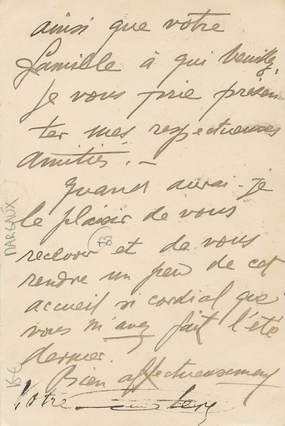 ainsi que votre
famille à qui veuillez
je vous prie présen
ter mes respectueuses
amitiés. -
Quand aurai-je
le plaisir de vous
recevoir et de vous
rendre un peu de cet
accueil si cordial que
vous m'avez fait l'été
dernier.
Bien affectueusement
Votre
MARGAUX